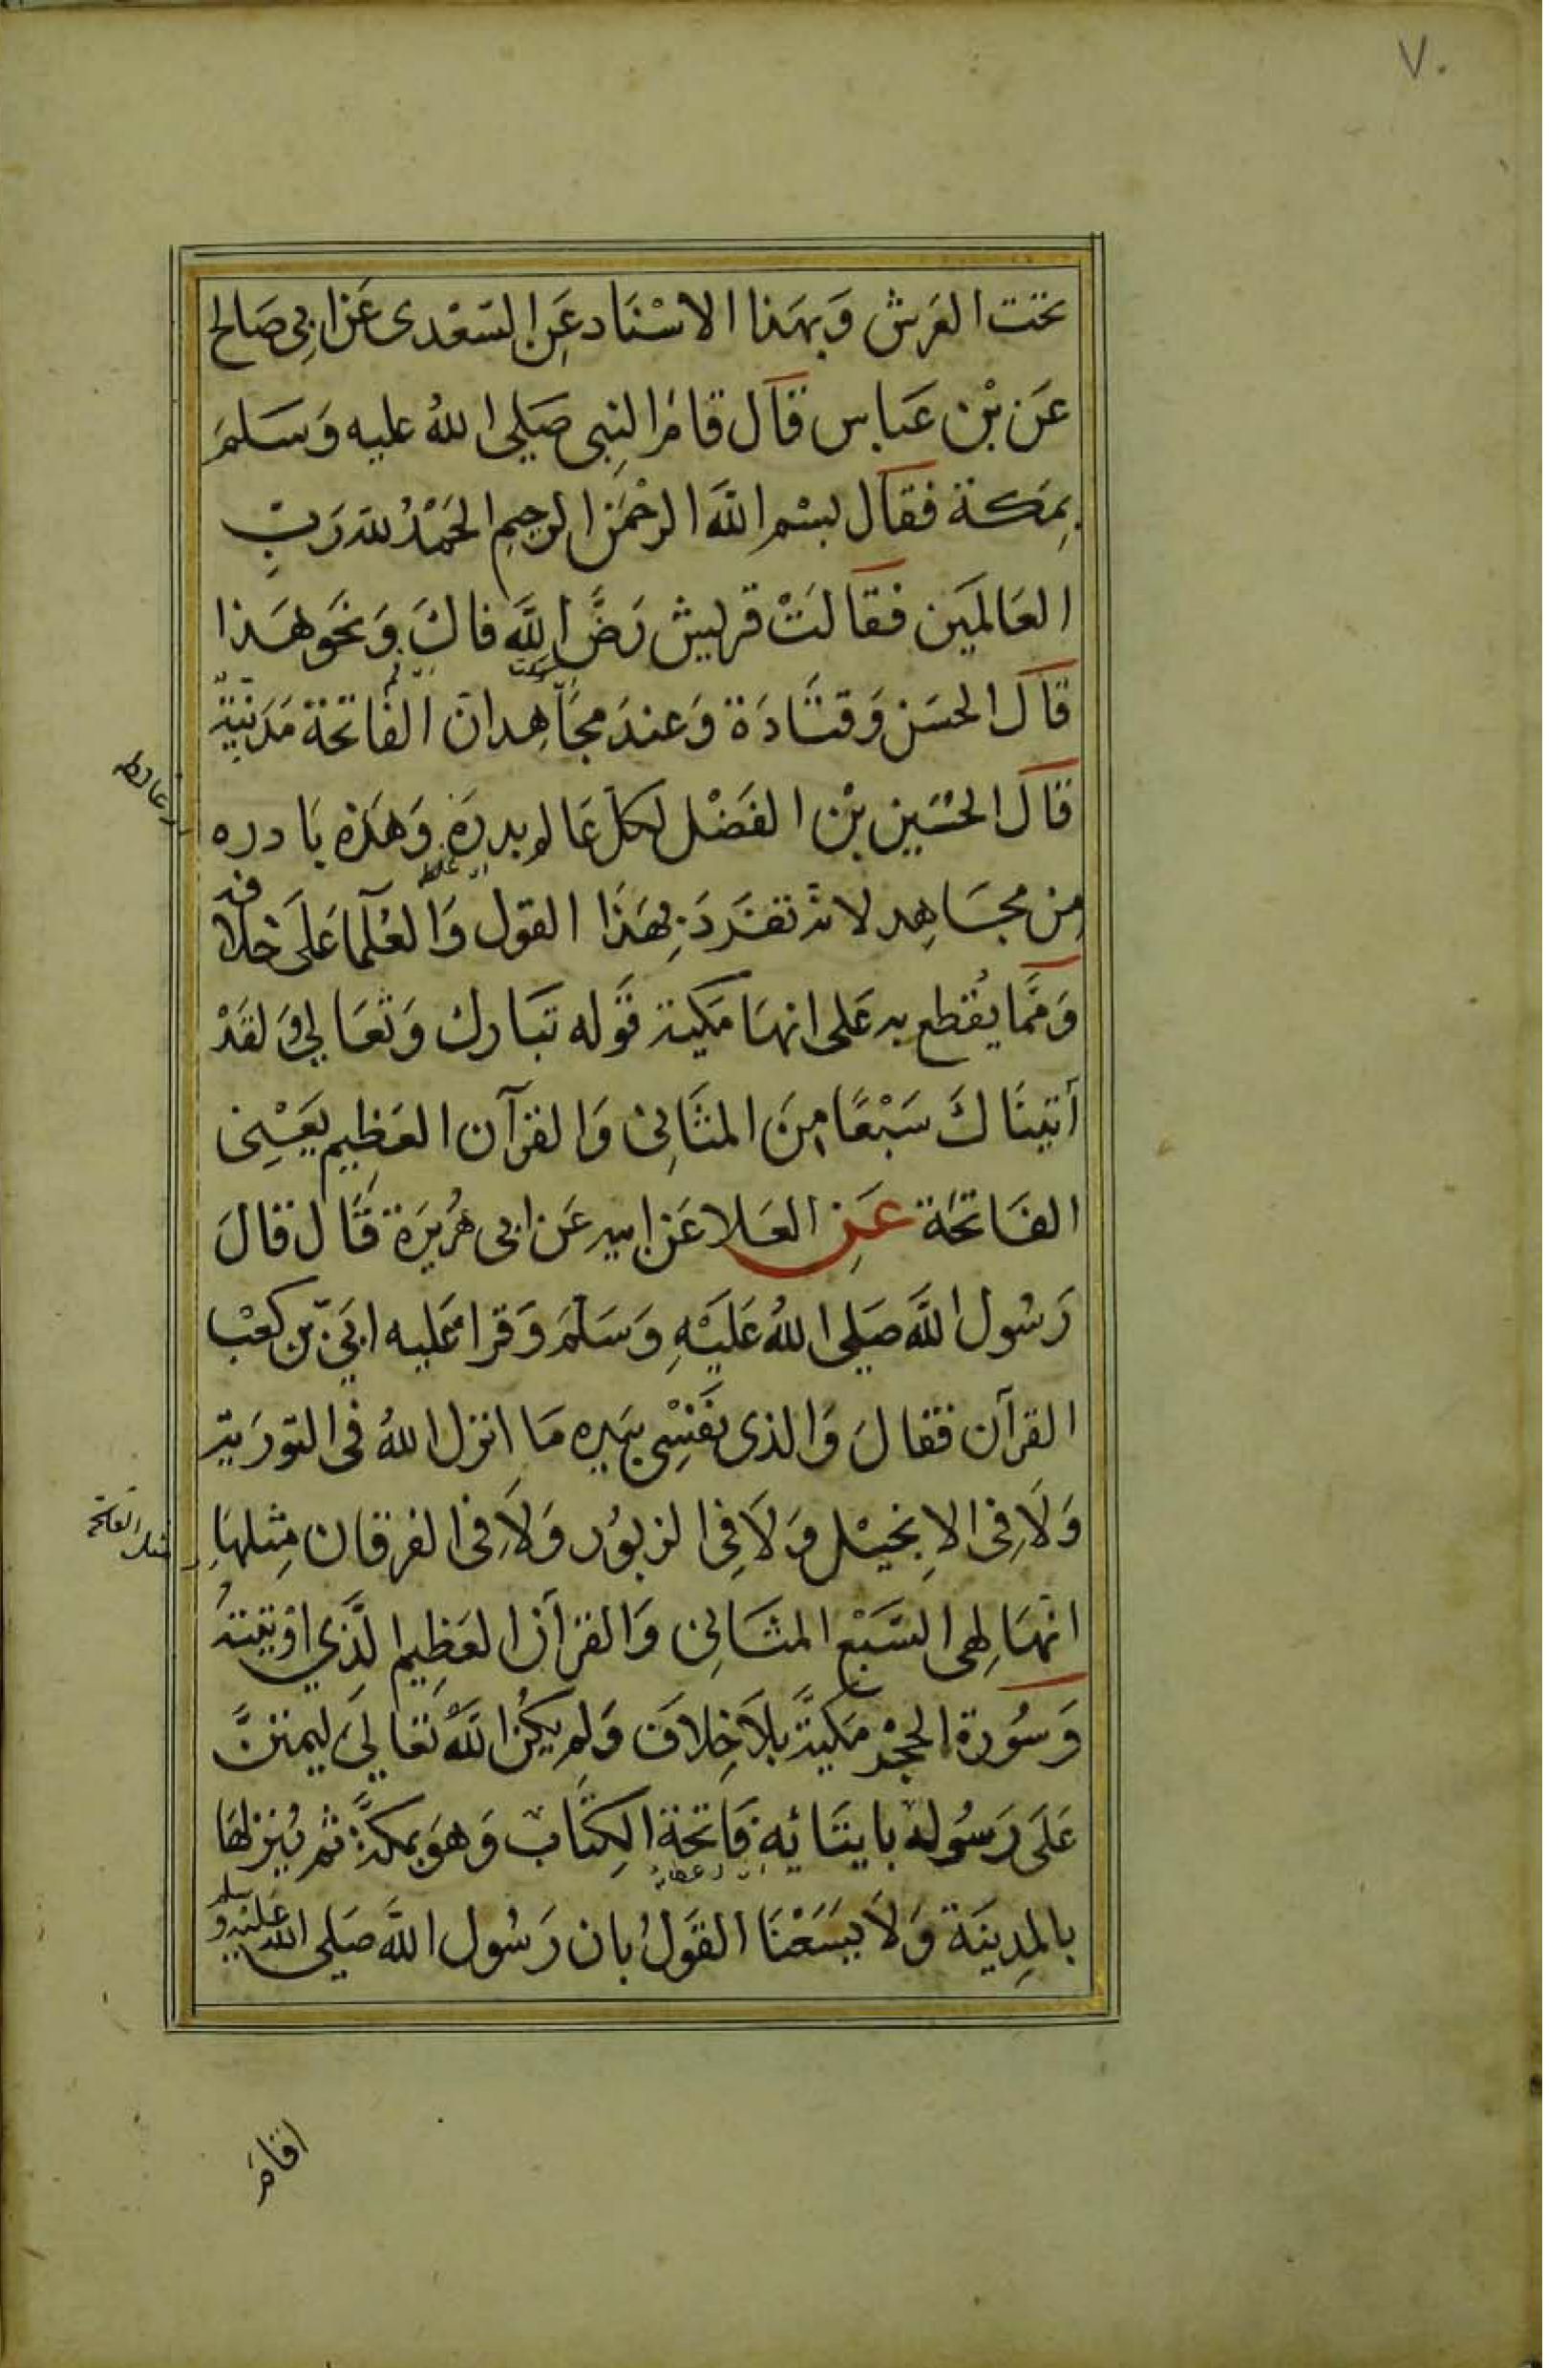 ٧٠
تحت العَرش وَبهَذا الاسْنَاد عَنِ السّعْدى عَن ابِي صَالح
عَن بْن عَباس قَال قامَ النبِى صَلي الله عليه وَسَلمَ
بِمَكة فقَال بسْم اللَّه الرحْمَن الرحِيمِ الحَمْدُ لله رَبِّ
العَالمَين فقَالَتْ قريش رَضَّ اللَّه فاكَ وَنحَو هَذا
قَال الحسَن وَقتَادَة وَعندَ مجَاهِد انَ الفَاتحَة مَدَنيّة
قَال الحُسَين بْن الفَضْل لكل عَالم بدرَة وَهَذه بَادره
مِن مجَاهِد لانه تفَردَ بِهَذا القول وَالعُلَمآ عَلَى خلافه
وَممَّا يُقطع به عَلى انهَا مَكية قَوله تبَارك وَتعَالي وَلقَدْ
أتينَاكَ سَبْعًا مِنَ المثَانِى وَالقرآن العَظِيم يَعْنِى
الفَاتحَة عَنِ العَلا عَن ابيه عَن ابى هُرَيرَة قَال قالَ
رَسُول اللَّه صَلي اللهُ عَلَيْهِ وَسَلمَ وَقرا عَليه ابَيّ بن كعْب
القرآن فقالَ وَالذى نفَسْى بيَده مَا انزل اللهُ فى التورَية
وَلَا فِى الاِنجيْل وَلَا فِى الزبوُر وَلَا فِى الفرقان مِثلهَا
مثل الفاتحة
انهَا لهِى السَّبْع المثَانِى وَالقرآن العَظِيم الَّذي اوتيتهُ
وَسُورة الحجْر مَكيَّة بلَا خِلاف وَلم يَكُن اللَّهُ تعَالى ليمتنَّ
عَلَى رَسُوله بايتَائه فَاتحَة الكِتَاب وَهوَ بمكَّة ثم يُنزلهَا
بالمدِينَة وَلَا يسَعْنَا القَولُ بان رَسُول اللَّه صَلي الله عَليْه وسلم
اقامَ